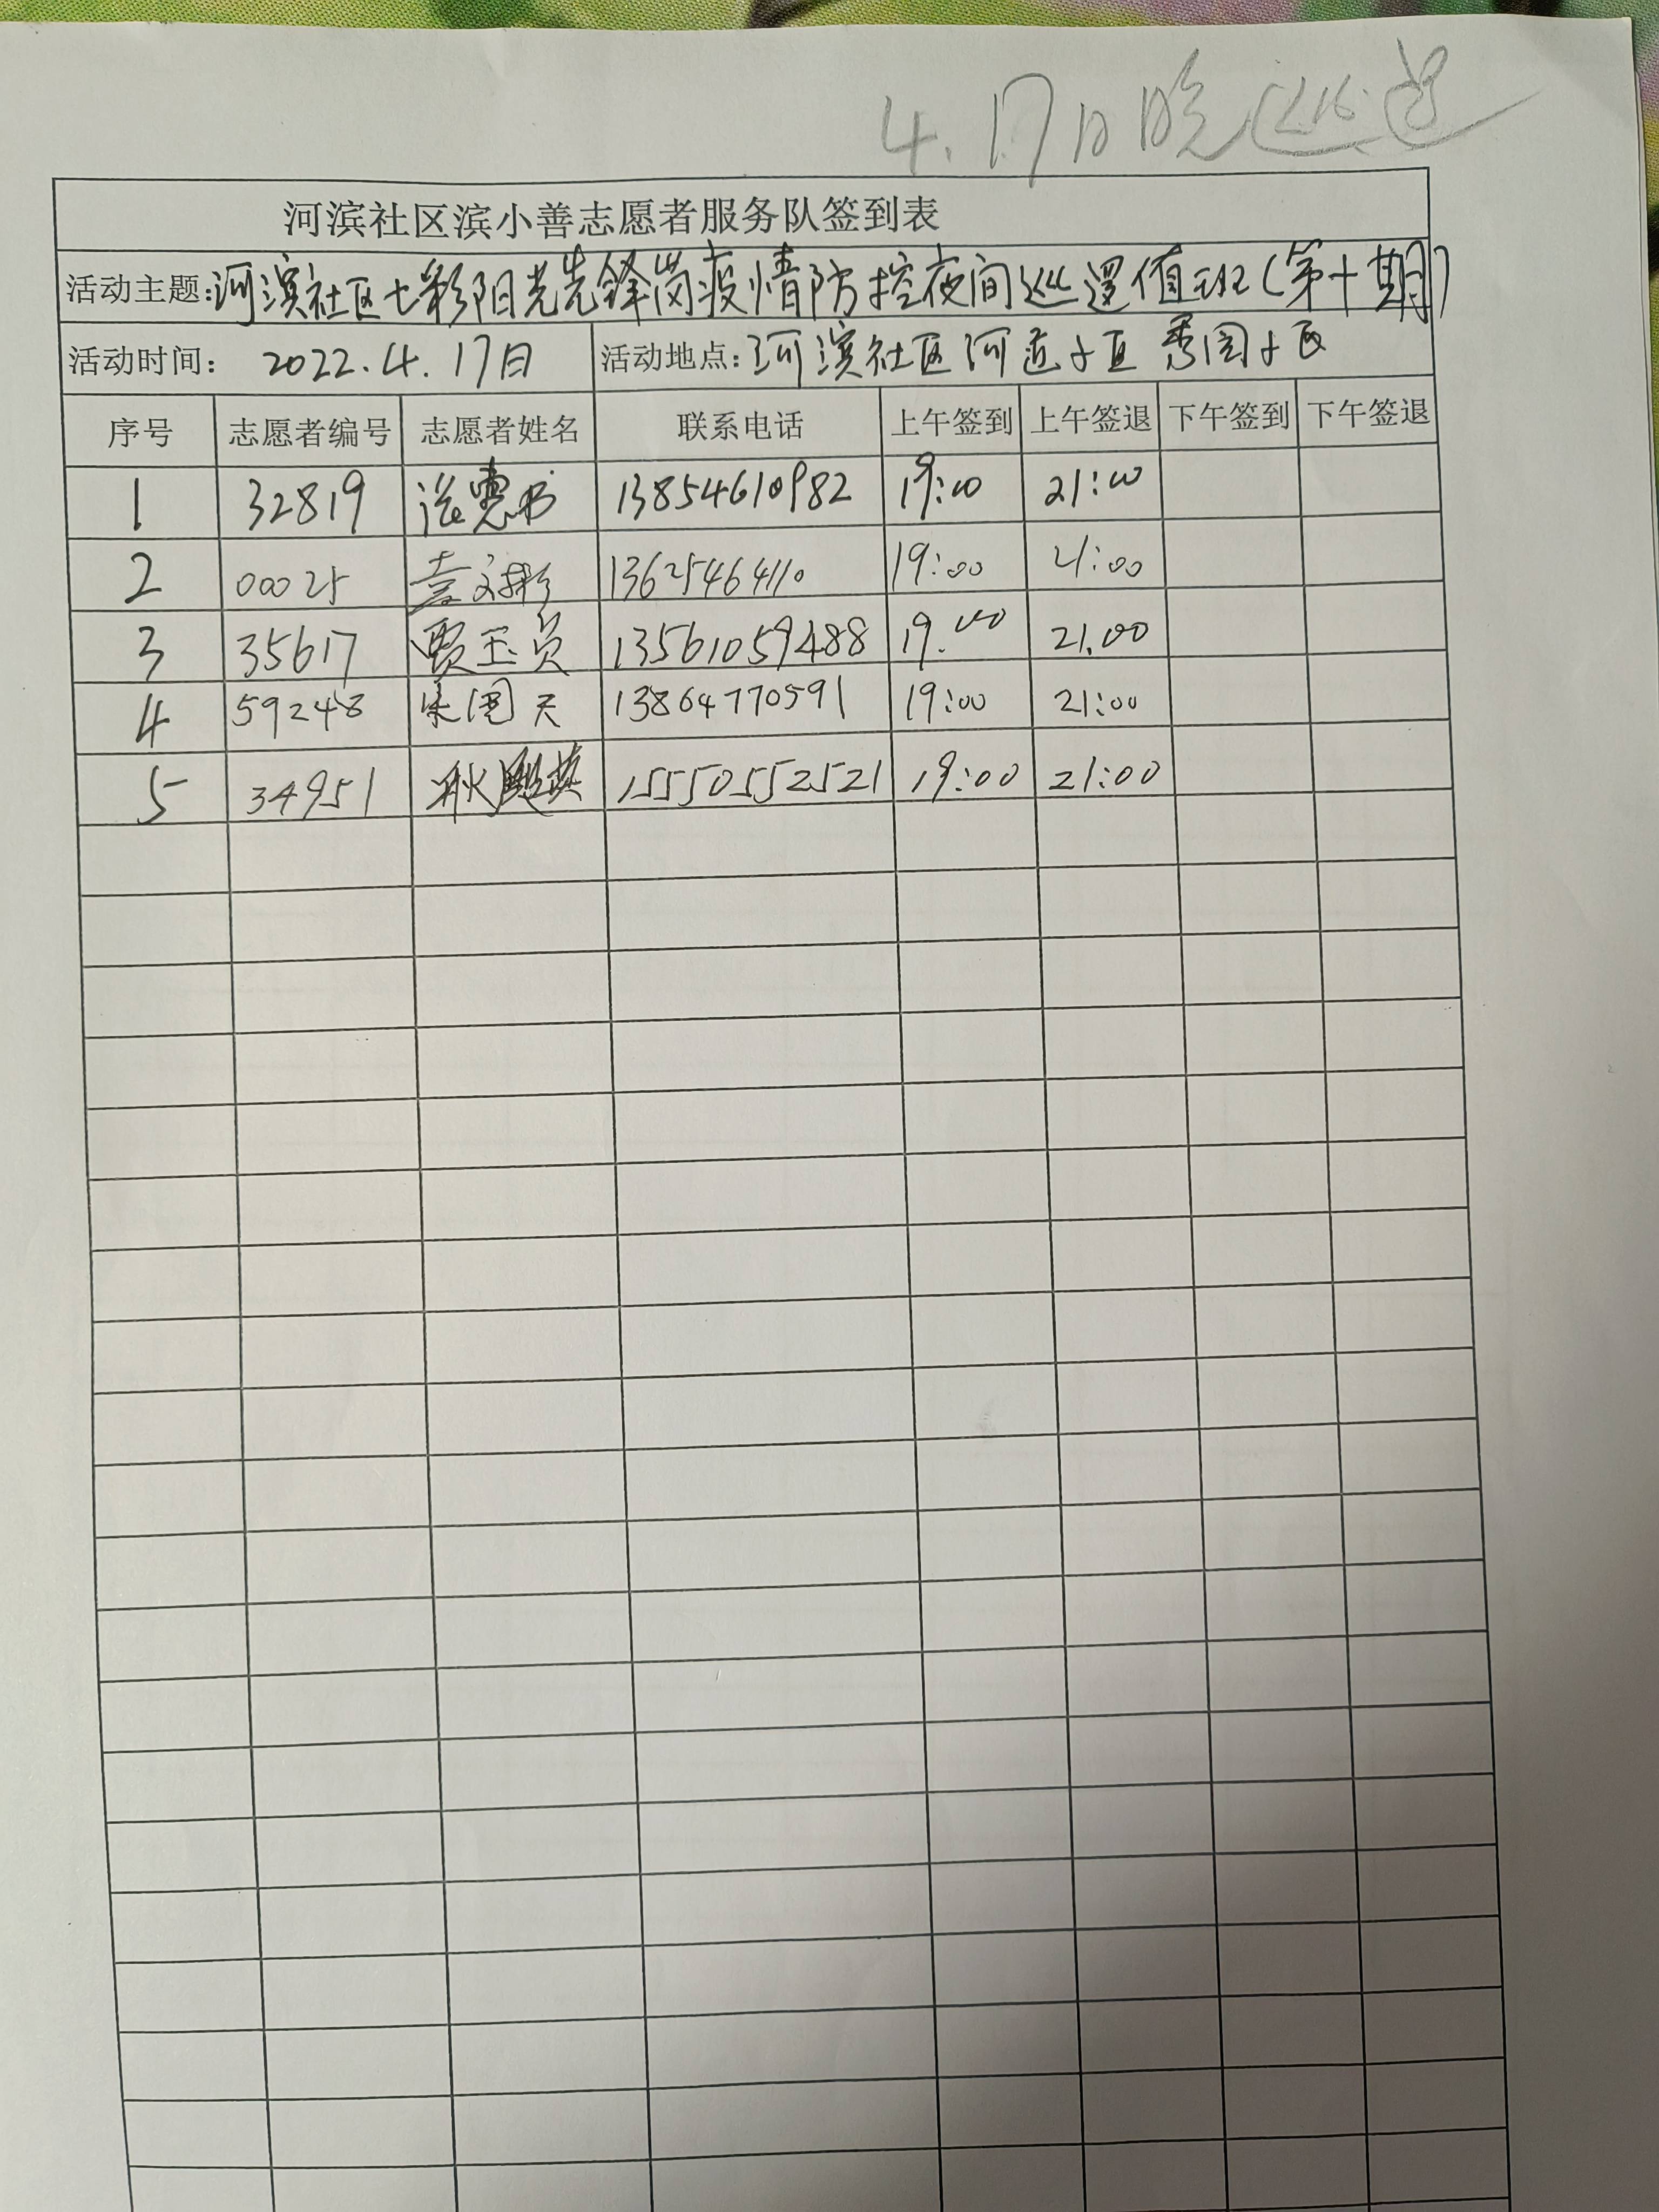 4.17日晚巡逻
河滨社区滨小善志愿者服务队签到表
活动主题:河滨社区七彩阳光先锋岗疫情防控夜间巡逻值班(第十期)
活动时间: 2022.4.17日 活动地点:河滨社区河运小区 秀园小区
序号 志愿者编号 志愿者姓名 联系电话 上午签到 上午签退 下午签到 下午签退
1 32819 13854610982 19:00 21:00
2 00025 13625464110 19:00 21:00
3 35617 贾玉贞 13561059488 19.00 21.00
4 59248 13864770591 19:00 21:00
5 34951 15550552521 19:00 21:00